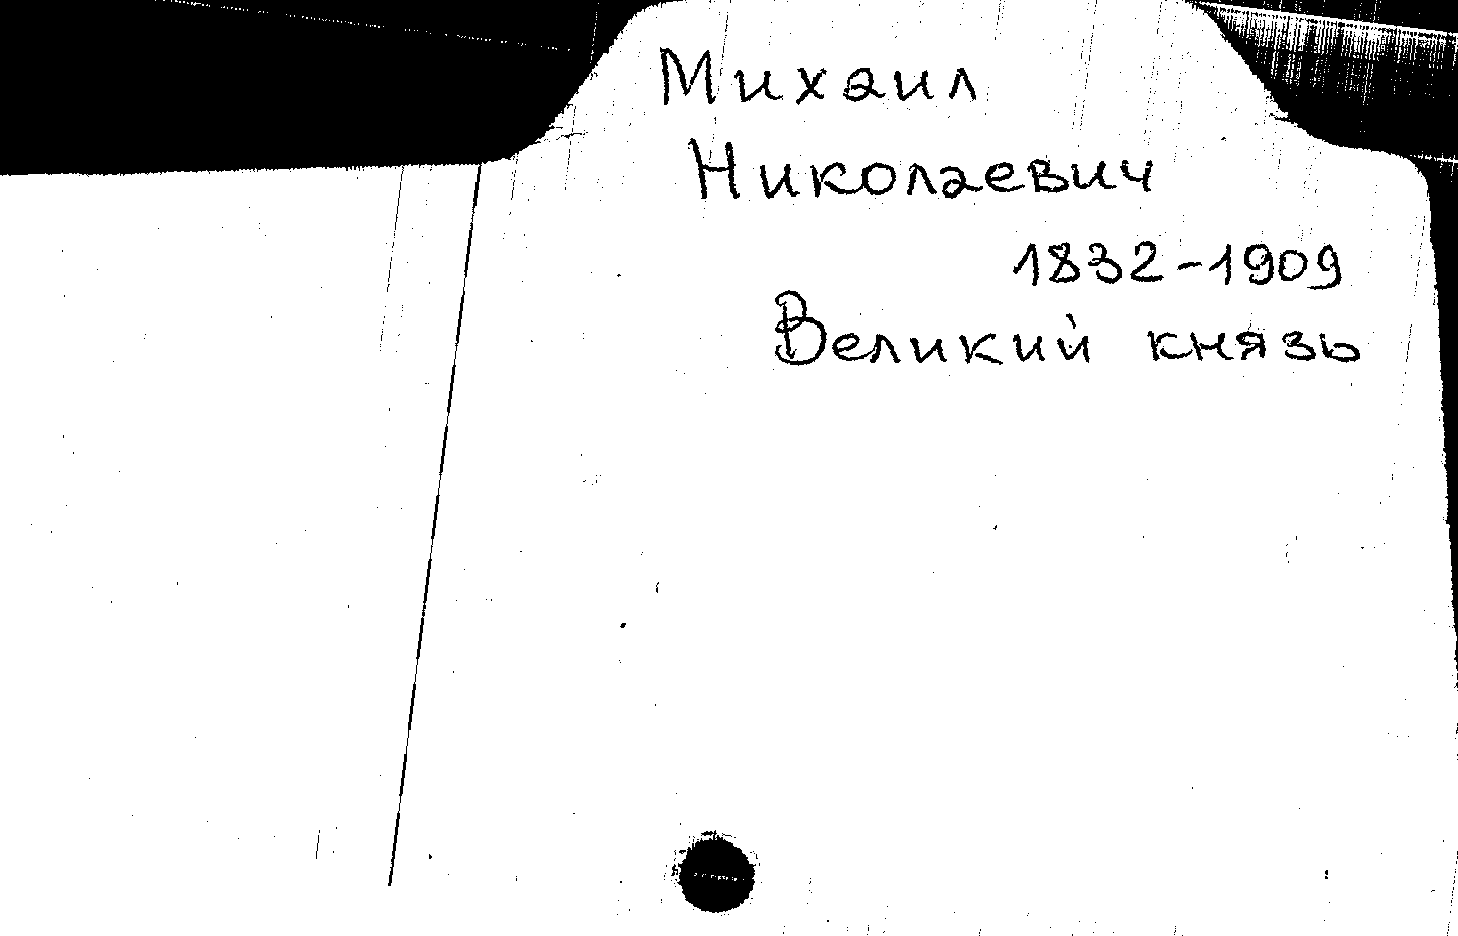 Михаил
Николаевич
1832-1909
Великий князь